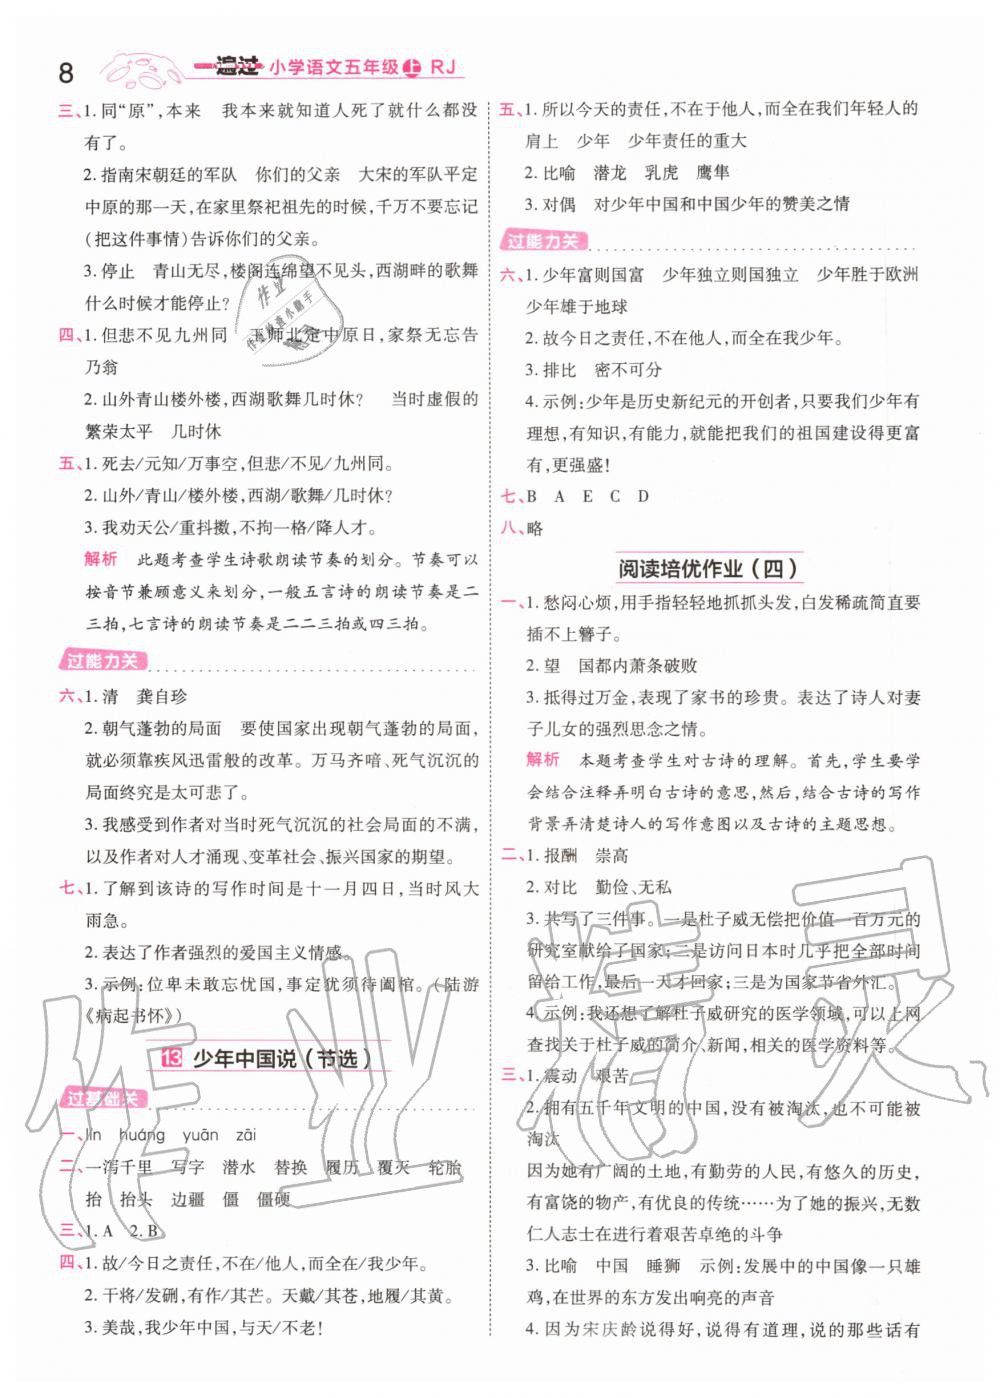 8
一遍过 小学语文五年级上 RJ
三、1. 同“原”,本来　我本来就知道人死了就什么都没
有了。
2. 指南宋朝廷的军队　你们的父亲　大宋的军队平定
中原的那一天,在家里祭祀祖先的时候,千万不要忘记
(把这件事情)告诉你们的父亲。
3. 停止　青山无尽,楼阁连绵望不见头,西湖畔的歌舞
什么时候才能停止?
四、1. 但悲不见九州同　王师北定中原日,家祭无忘告
乃翁
2. 山外青山楼外楼,西湖歌舞几时休?　当时虚假的
繁荣太平　几时休
五、1. 死去/元知/万事空,但悲/不见/九州同。
2. 山外/青山/楼外楼,西湖/歌舞/几时休?
3. 我劝天公/重抖擞,不拘一格/降人才。
解析　此题考查学生诗歌朗读节奏的划分。节奏可以
按音节兼顾意义来划分,一般五言诗的朗读节奏是二
三拍,七言诗的朗读节奏是二二三拍或四三拍。
过能力关
六、1. 清　龚自珍
2. 朝气蓬勃的局面　要使国家出现朝气蓬勃的局面,
就必须靠疾风迅雷般的改革。万马齐喑、死气沉沉的
局面终究是太可悲了。
3. 我感受到作者对当时死气沉沉的社会局面的不满,
以及作者对人才涌现、变革社会、振兴国家的期望。
七、1. 了解到该诗的写作时间是十一月四日,当时风大
雨急。
2. 表达了作者强烈的爱国主义情感。
3. 示例:位卑未敢忘忧国,事定犹须待阖棺。(陆游
《病起书怀》)
13 少年中国说(节选)
过基础关
一、lín　huáng　yuān　zāi
二、一泻千里　写字　潜水　替换　履历　覆灭　轮胎
抬　抬头　边疆　僵　僵硬
三、1. A　2. B
四、1. 故/今日之责任,不在/他人,而全在/我少年。
2. 干将/发硎,有作/其芒。天戴/其苍,地履/其黄。
3. 美哉,我少年中国,与天/不老!
五、1. 所以今天的责任,不在于他人,而全在我们年轻人的
肩上　少年　少年责任的重大
2. 比喻　潜龙　乳虎　鹰隼
3. 对偶　对少年中国和中国少年的赞美之情
过能力关
六、1. 少年富则国富　少年独立则国独立　少年胜于欧洲
少年雄于地球
2. 故今日之责任,不在他人,而全在我少年。
3. 排比　密不可分
4. 示例:少年是历史新纪元的开创者,只要我们少年有
理想,有知识,有能力,就能把我们的祖国建设得更富
有,更强盛!
七、B　A　E　C　D
八、略
阅读培优作业(四)
一、1. 愁闷心烦,用手指轻轻地抓抓头发,白发稀疏简直要
插不上簪子。
2. 望　国都内萧条破败
3. 抵得过万金,表现了家书的珍贵。表达了诗人对妻
子儿女的强烈思念之情。
解析　本题考查学生对古诗的理解。首先,学生要学
会结合注释弄明白古诗的意思,然后,结合古诗的写作
背景弄清楚诗人的写作意图以及古诗的主题思想。
二、1. 报酬　崇高
2. 对比　勤俭、无私
3. 共写了三件事。一是杜子威无偿把价值一百万元的
研究室献给了国家;二是访问日本时几乎把全部时间
留给工作,最后一天才回家;三是为国家节省外汇。
4. 示例:我还想了解杜子威的医学领域,可以上网
查找关于杜子威的简介、新闻、相关的医学资料等。
三、1. 震动　艰苦
2. 拥有五千年文明的中国,没有被淘汰,也不可能被
淘汰
因为她有广阔的土地,有勤劳的人民,有悠久的历史,
有富饶的物产,有优良的传统……为了她的振兴,无数
仁人志士在进行着艰苦卓绝的斗争
3. 比喻　中国　睡狮　示例:发展中的中国像一只雄
鸡,在世界的东方发出响亮的声音
4. 因为宋庆龄说得好,说得有道理,说的那些话有
作业精灵